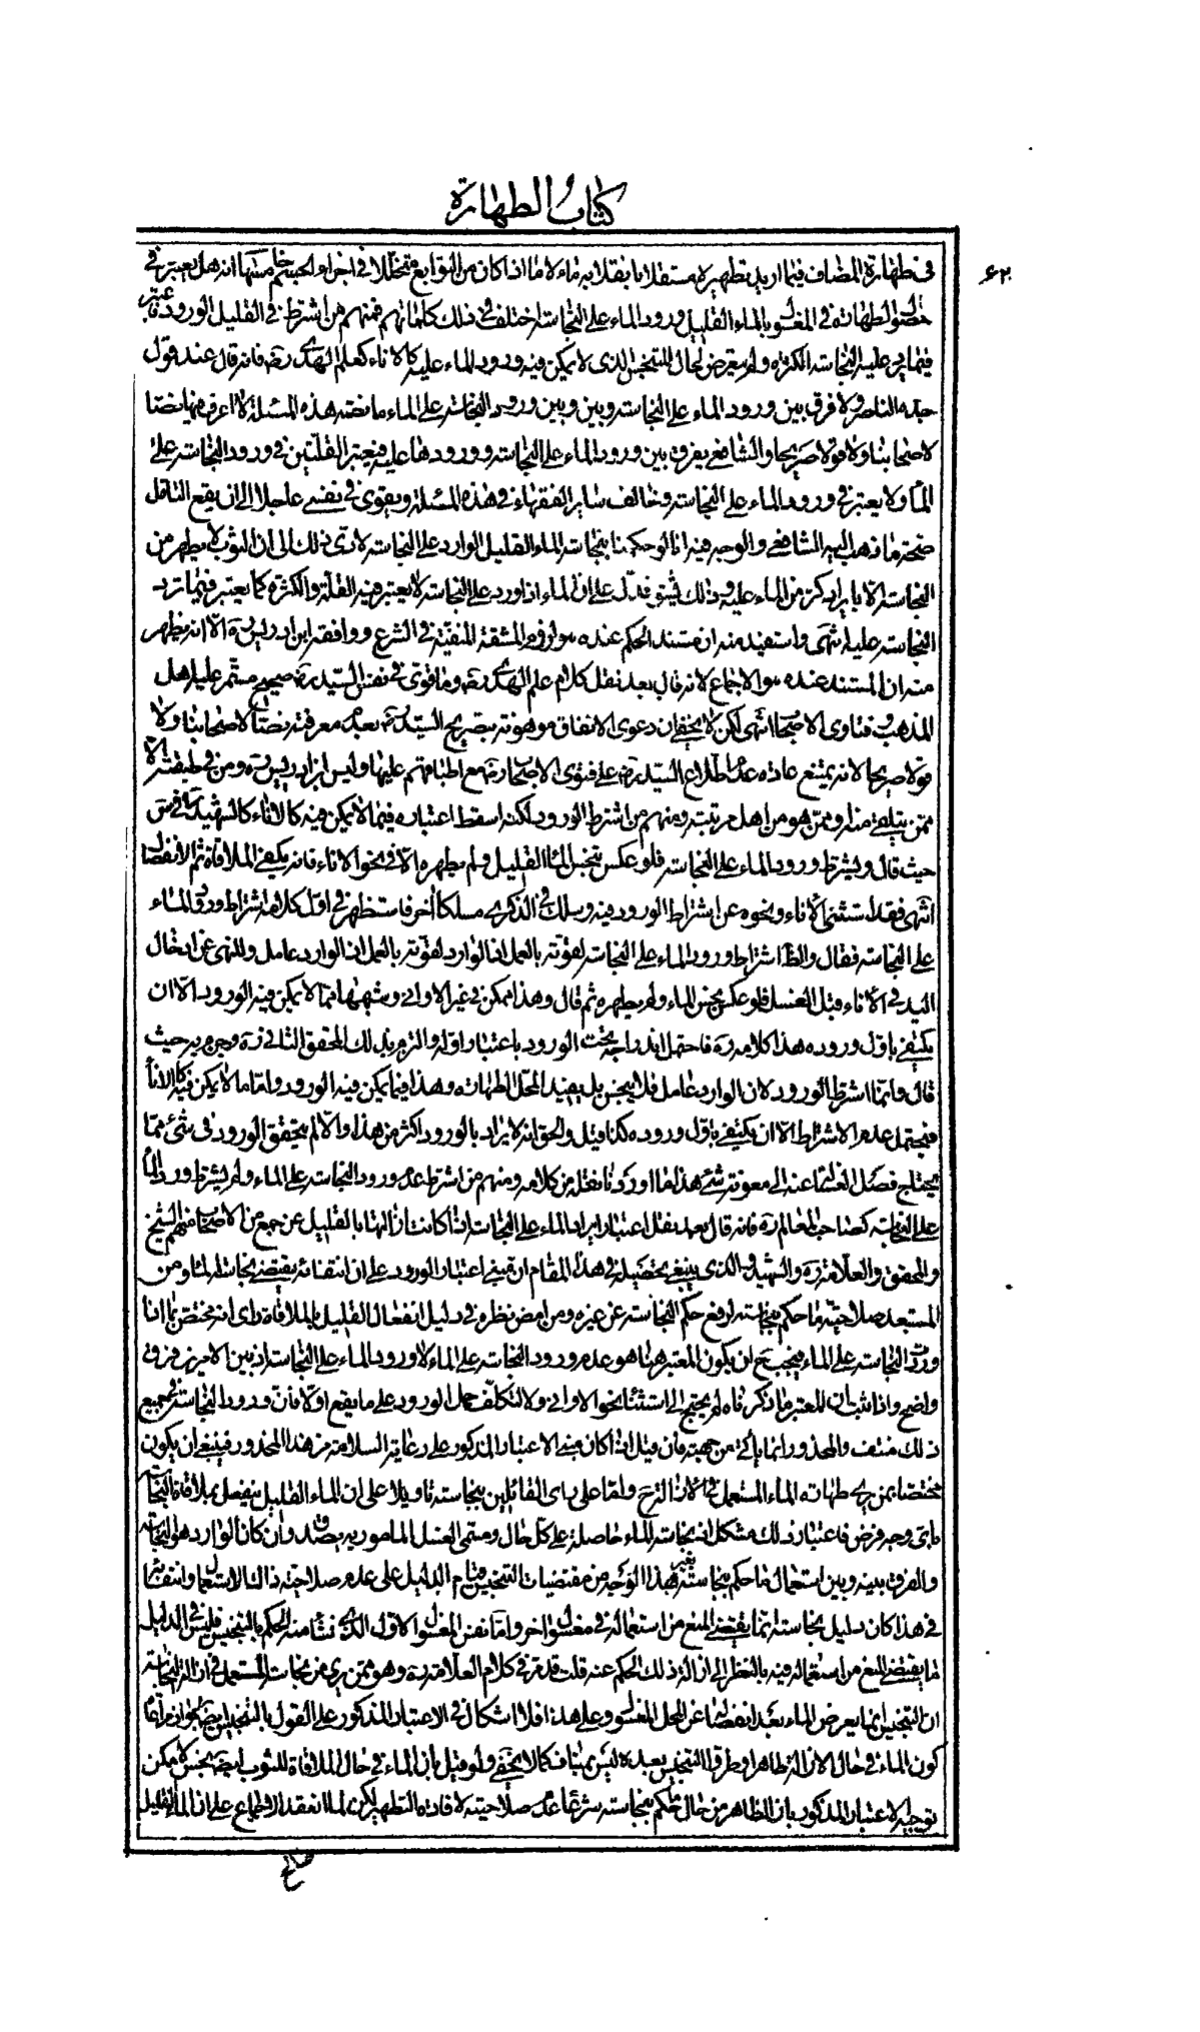 كتاب الطهارة
۶۲۰
فى طهارة المضاف فيما اريد تطهيره مستقلا بانقلابه ماء لا ما اذا كان من التوابع متخللا فى اجزاء الجسم خامسها انه هل يعتبر فى
حصول الطهارة فى المغسول بالماء القليل ورود الماء على النجاسة اختلف فى ذلك كلماتهم فمنهم من اشترط فى القليل الورود فاعتبر
فيما يرد عليه النجاسة الكثرة ولم يتعرض لحال المتنجس الذى لا يمكن فيه ورود الماء عليه كالاناء كعلم الهدى رضه فانه قال عند قول
جده الناصر ولا فرق بين ورود الماء على النجاسة وبين وبين ورود النجاسة على الماء ما نصه هذه المسئلة لا اعرف فيها نصا
لاصحابنا ولا قولا صريحا والشافعى يفرق بين ورود الماء على النجاسة وورودها عليه فيعتبر القلتين فى ورود النجاسة على
الماء ولا يعتبر فى ورود الماء على النجاسة وخالف ساير الفقهاء فى هذه المسئلة ويقوى فى نفسى عاجلا الى ان يقع التامل
صحة ما ذهب اليه الشافعى والوجه فيه انا لو حكمنا بنجاسة الماء القليل الوارد على النجاسة لادى ذلك الى ان الثوب لا يطهر من
النجاسة الا بايراد كر من الماء عليه وذلك يشق فدل على ان الماء اذا ورد على النجاسة لا يعتبر فيه القلة والكثرة كما يعتبر فيما ترد
النجاسة عليه انتهى واستفيد منه ان مستند الحكم عنده هو لزوم المشقة المنفية فى الشرع ووافقه ابن ادريس ره الا انه يظهر
منه ان المستند عنده هو الاجماع لانه قال بعد نقل كلام علم الهدى رضه وما قوى فى نفس السيد ره صحيح مستمر على اهل
المذهب وفتاوى الاصحاب انتهى لكن لا يخفى ان دعوى الاتفاق موهونة بتصريح السيد رضه بعدم معرفة نصا لاصحابنا ولا
قولا صريحا لانه يمتنع عادة عدم اطلاع السيد رضه على فتوى الاصحاب مع اطباقهم عليها وليس ابن ادريس ره ومن فى طبقته الا
ممن يتلقى منه او ممن هو من اهل مرتبته ومنهم من اشترط الورود لكنه اسقط اعتباره فيما لا يمكن فيه كالاناء كالشهيد ره فى س
حيث قال ويشترط ورود الماء على النجاسة فلو عكس نجس الماء القليل ولم يطهره الا فى نحو الاناء فانه يكفى الملاقاة ثم الانفصال
انتهى فقد استثنى الاناء ونحوه عن اشتراط الورود فيه وسلك فى الذكرى مسلكا اخر فاستظهر فى اول كلامه اشتراط ورود الماء
على النجاسة فقال والظ اشتراط ورود الماء على النجاسة لقوته بالعمل اذ الوارد لقوته بالعمل اذ الوارد عامل وللنهى عن ادخال
اليد فى الاناء قبل الغسل فلو عكس نجس الماء ولم يطهره ثم قال وهذا ممكن فى غير الاوانى وشبهها مما لا يمكن فيه الورود الا ان
يكتفى باول وروده هذا كلامه ره فاحتمل اندراجه تحت الورود باعتبار اوله والتزم بذلك المحقق الثانى ره وجزم به حيث
قال وانما اشترط الورود لان الوارد عامل فلا ينجس بل يفيد المحل الطهارة وهذا فيما يمكن فيه الورود واما ما لا يمكن فيه كالاناء
فيحتمل عدم الاشتراط الا ان يكتفى باول وروده كذا قيل والحق انه لا يراد بالورود اكثر من هذا والا لم يتحقق الورود فى شئ مما
يحتاج فصل الغسالة عنه الى معونة شئ هذا ما اوردنا نقله من كلامه ومنهم من اشترط عدم ورود النجاسة على الماء ولم يشترط ورود الماء
على النجاسة كصاحب المعالم ره فانه قال بعد نقل اعتبار ايراد الماء على النجاسة اذا كانت ازالتها بالقليل عن جمع من الاصحاب منهم الشيخ
والمحقق والعلامة ره والشهيد والذى ينبغى تحصيله فى هذا المقام ان مبنى اعتبار الورود على ان انتفائه يقتضى نجاسة الماء ومن
المستبعد صلاحية ما حكم بنجاسته لرفع حكم النجاسة عن غيره ومن امعن نظره فى دليل انفعال القليل بالملاقاة راى انه مختص بما اذا
وردت النجاسة على الماء فيجب ح ان يكون المعتبر هنا هو عدم ورود النجاسة على الماء لا ورود الماء على النجاسة اذ بين الامرين فرق
واضح واذا ثبت ان المعتبر ما ذكرناه لم يحتج الى استثناء نحو الاوانى ولا لتكلف حمل الورود على ما يقع اولا فان ورود النجاسة فى جميع
ذلك منتف والمحذور انما يأتى من جهته فان قيل اذا كان مبنى الاعتبار المذكور على رعاية السلامة من هذا المحذور فينبغى ان يكون
مختصا بمن يرى طهارة الماء المستعمل فى الازالة ح واما على راى القائلين بنجاسته تاويلا على ان الماء القليل ينفعل بملاقاة النجاسة
باى وجه فرض فاعتبار ذلك مشكل اذ نجاسة الماء حاصلة على كل حال ومسمى الغسل المامور به يصدق وان كان الوارد هو النجاسة
والفرق بينه وبين استعمال ما حكم بنجاسته بغير هذا الوجه من مقتضيات التنجيس قيام الدليل على عدم صلاحية ذاك الاستعمال وانتفائه
فى هذا كان دليل نجاسته انما يقتضى المنع من استعماله فى مغسول اخر واما نفس المغسول الاول الذى نشا منه الحكم بالتنجيس فليس فى الدليل
ما يقتضى المنع من استعماله فيه بالنظر الى ازالة ذلك الحكم عنه قلت قد مر فى كلام العلامة ره وهو ممن يرى نجاسة المستعمل فى ازالة النجاسة
ان التنجيس انما يعرض الماء بعد انفصاله عن المحل المغسول وعلى هذا فلا اشكال فى الاعتبار المذكور على القول بالتنجيس ايضا لجواز مراعاة
كون الماء فى حال الازالة طاهرا وطرو التنجيس بعده ليس بمناف كما لا يخفى ولو قيل بان الماء فى حال الملاقاة للثوب ايضه نجس لامكن
توجيه الاعتبار المذكور بان الظاهر من حال حكم بنجاسته شرعا عدم صلاحيته لافادة التطهير لكن لما انعقد الاجماع على ان الماء القليل
صالح